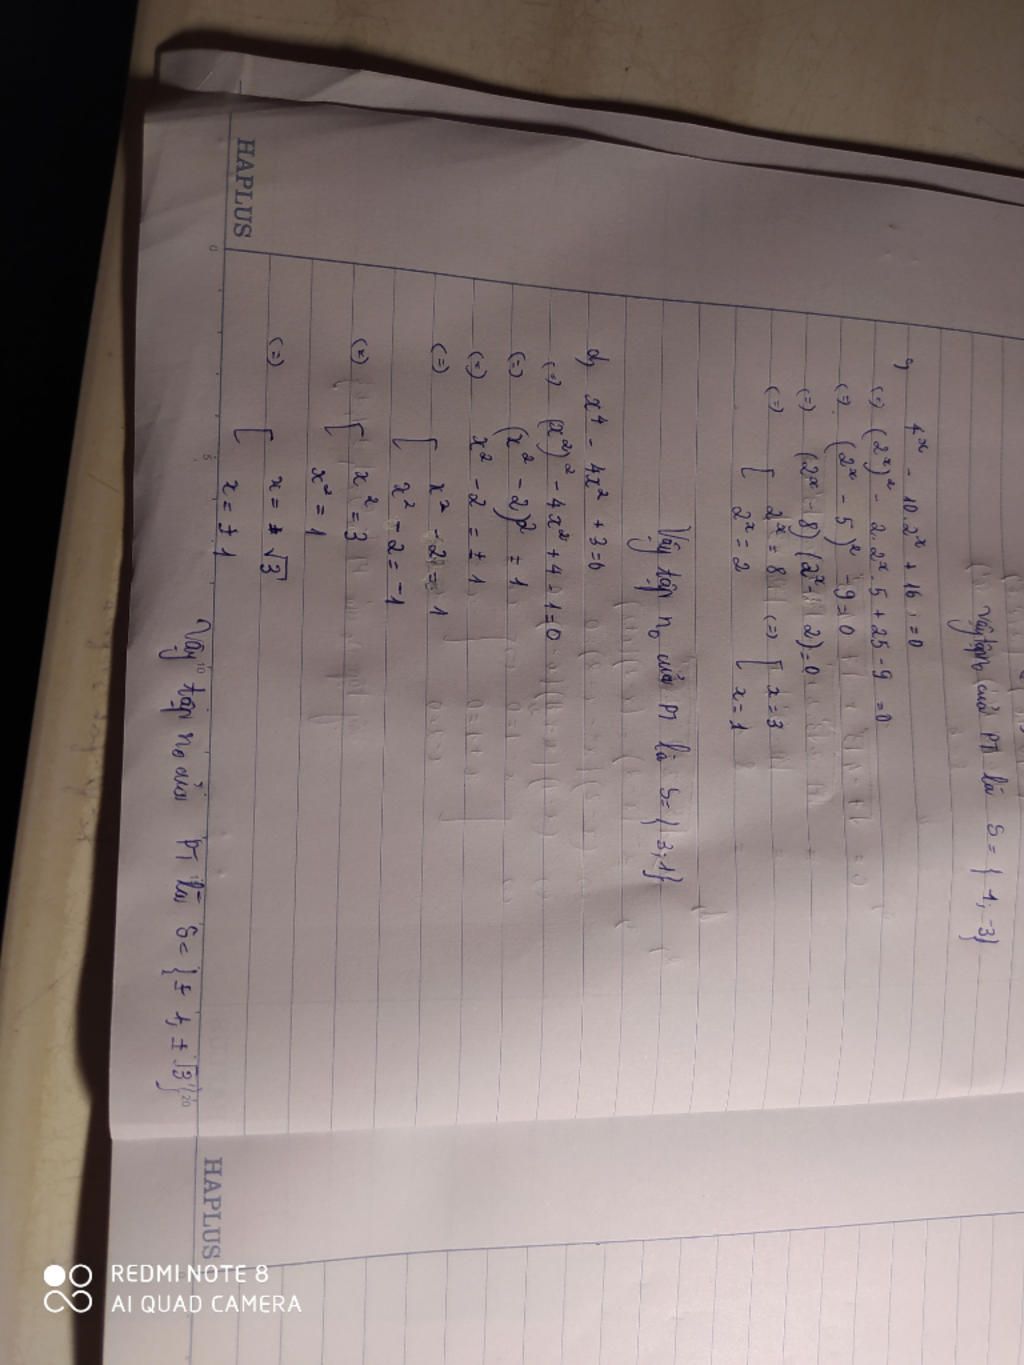 Vậy tập n₀ của PT là S = { 1; -3}
c, 4ˣ - 10.2ˣ + 16 = 0
(=) (2ˣ)² - 2.2ˣ.5 + 25 - 9 = 0
(=) (2ˣ - 5)² - 9 = 0
(=) (2ˣ - 8) (2ˣ - 2) = 0
(=) [ 2ˣ = 8 (=) [ x = 3
2ˣ = 2 x = 1
Vậy tập n₀ của PT là S = { 3; 1}
d, x⁴ - 4x² + 3 = 0
(=) (x²)² - 4x² + 4 - 1 = 0
(=) (x² - 2)² = 1
(=) x² - 2 = ± 1
(=) [ x² - 2 = 1
x² - 2 = -1
(=) [ x² = 3
x² = 1
(=) [ x = ± √3
x = ± 1
Vậy tập n₀ của PT là S = { ± 1, ± √3}
HAPLUS
0
5
10
15
20
HAPLUS
REDMI NOTE 8
AI QUAD CAMERA